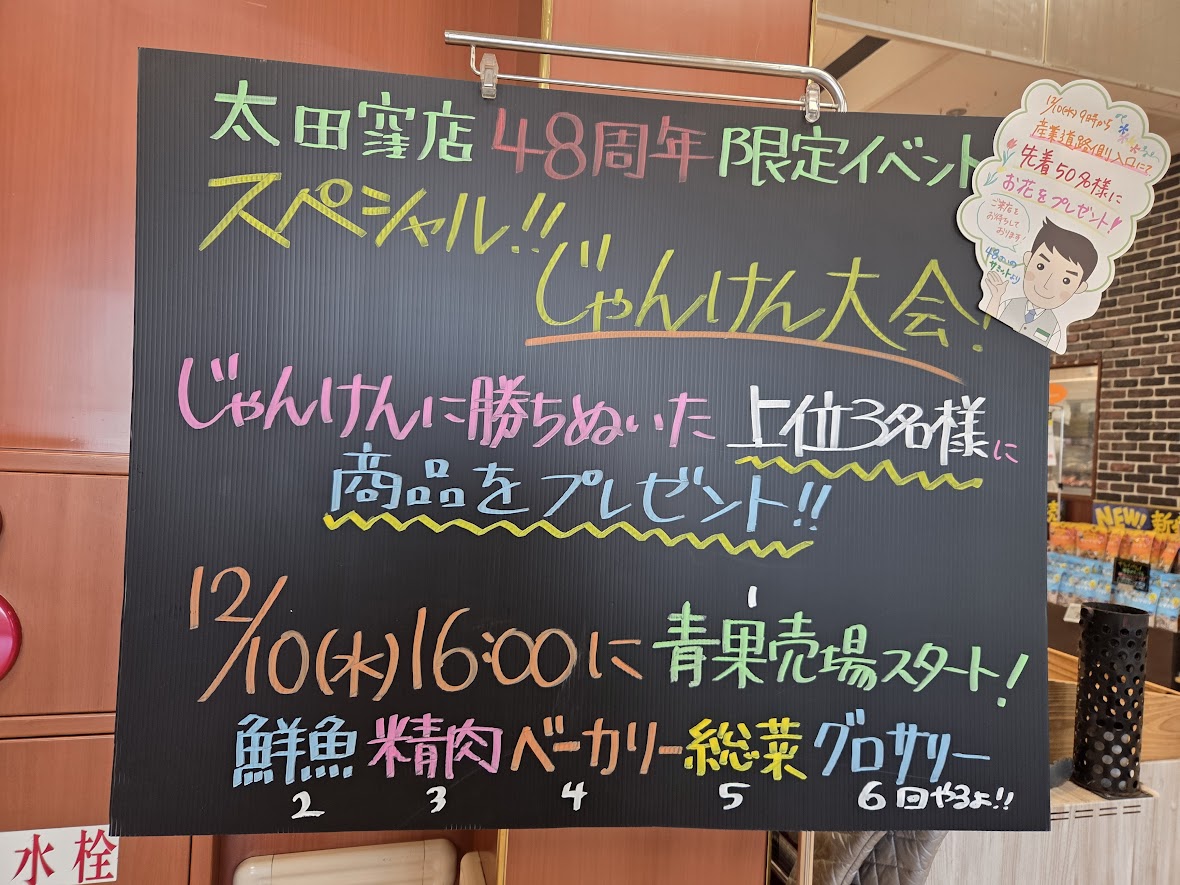 太田窪店 48周年 限定イベント
スペシャル!!
じゃんけん大会!
じゃんけんに勝ちぬいた 上位3名様に
商品をプレゼント!!
12/10(水)16:00に 青果売場スタート!
1
鮮魚 精肉 ベーカリー 総菜 グロサリー
2 3 4 5 6回やるよ!!
12/10(水)9時から
産業道路側入口にて
先着50名様に
お花をプレゼント!
ご来店を
お待ちして
おります!
NEW!
水栓